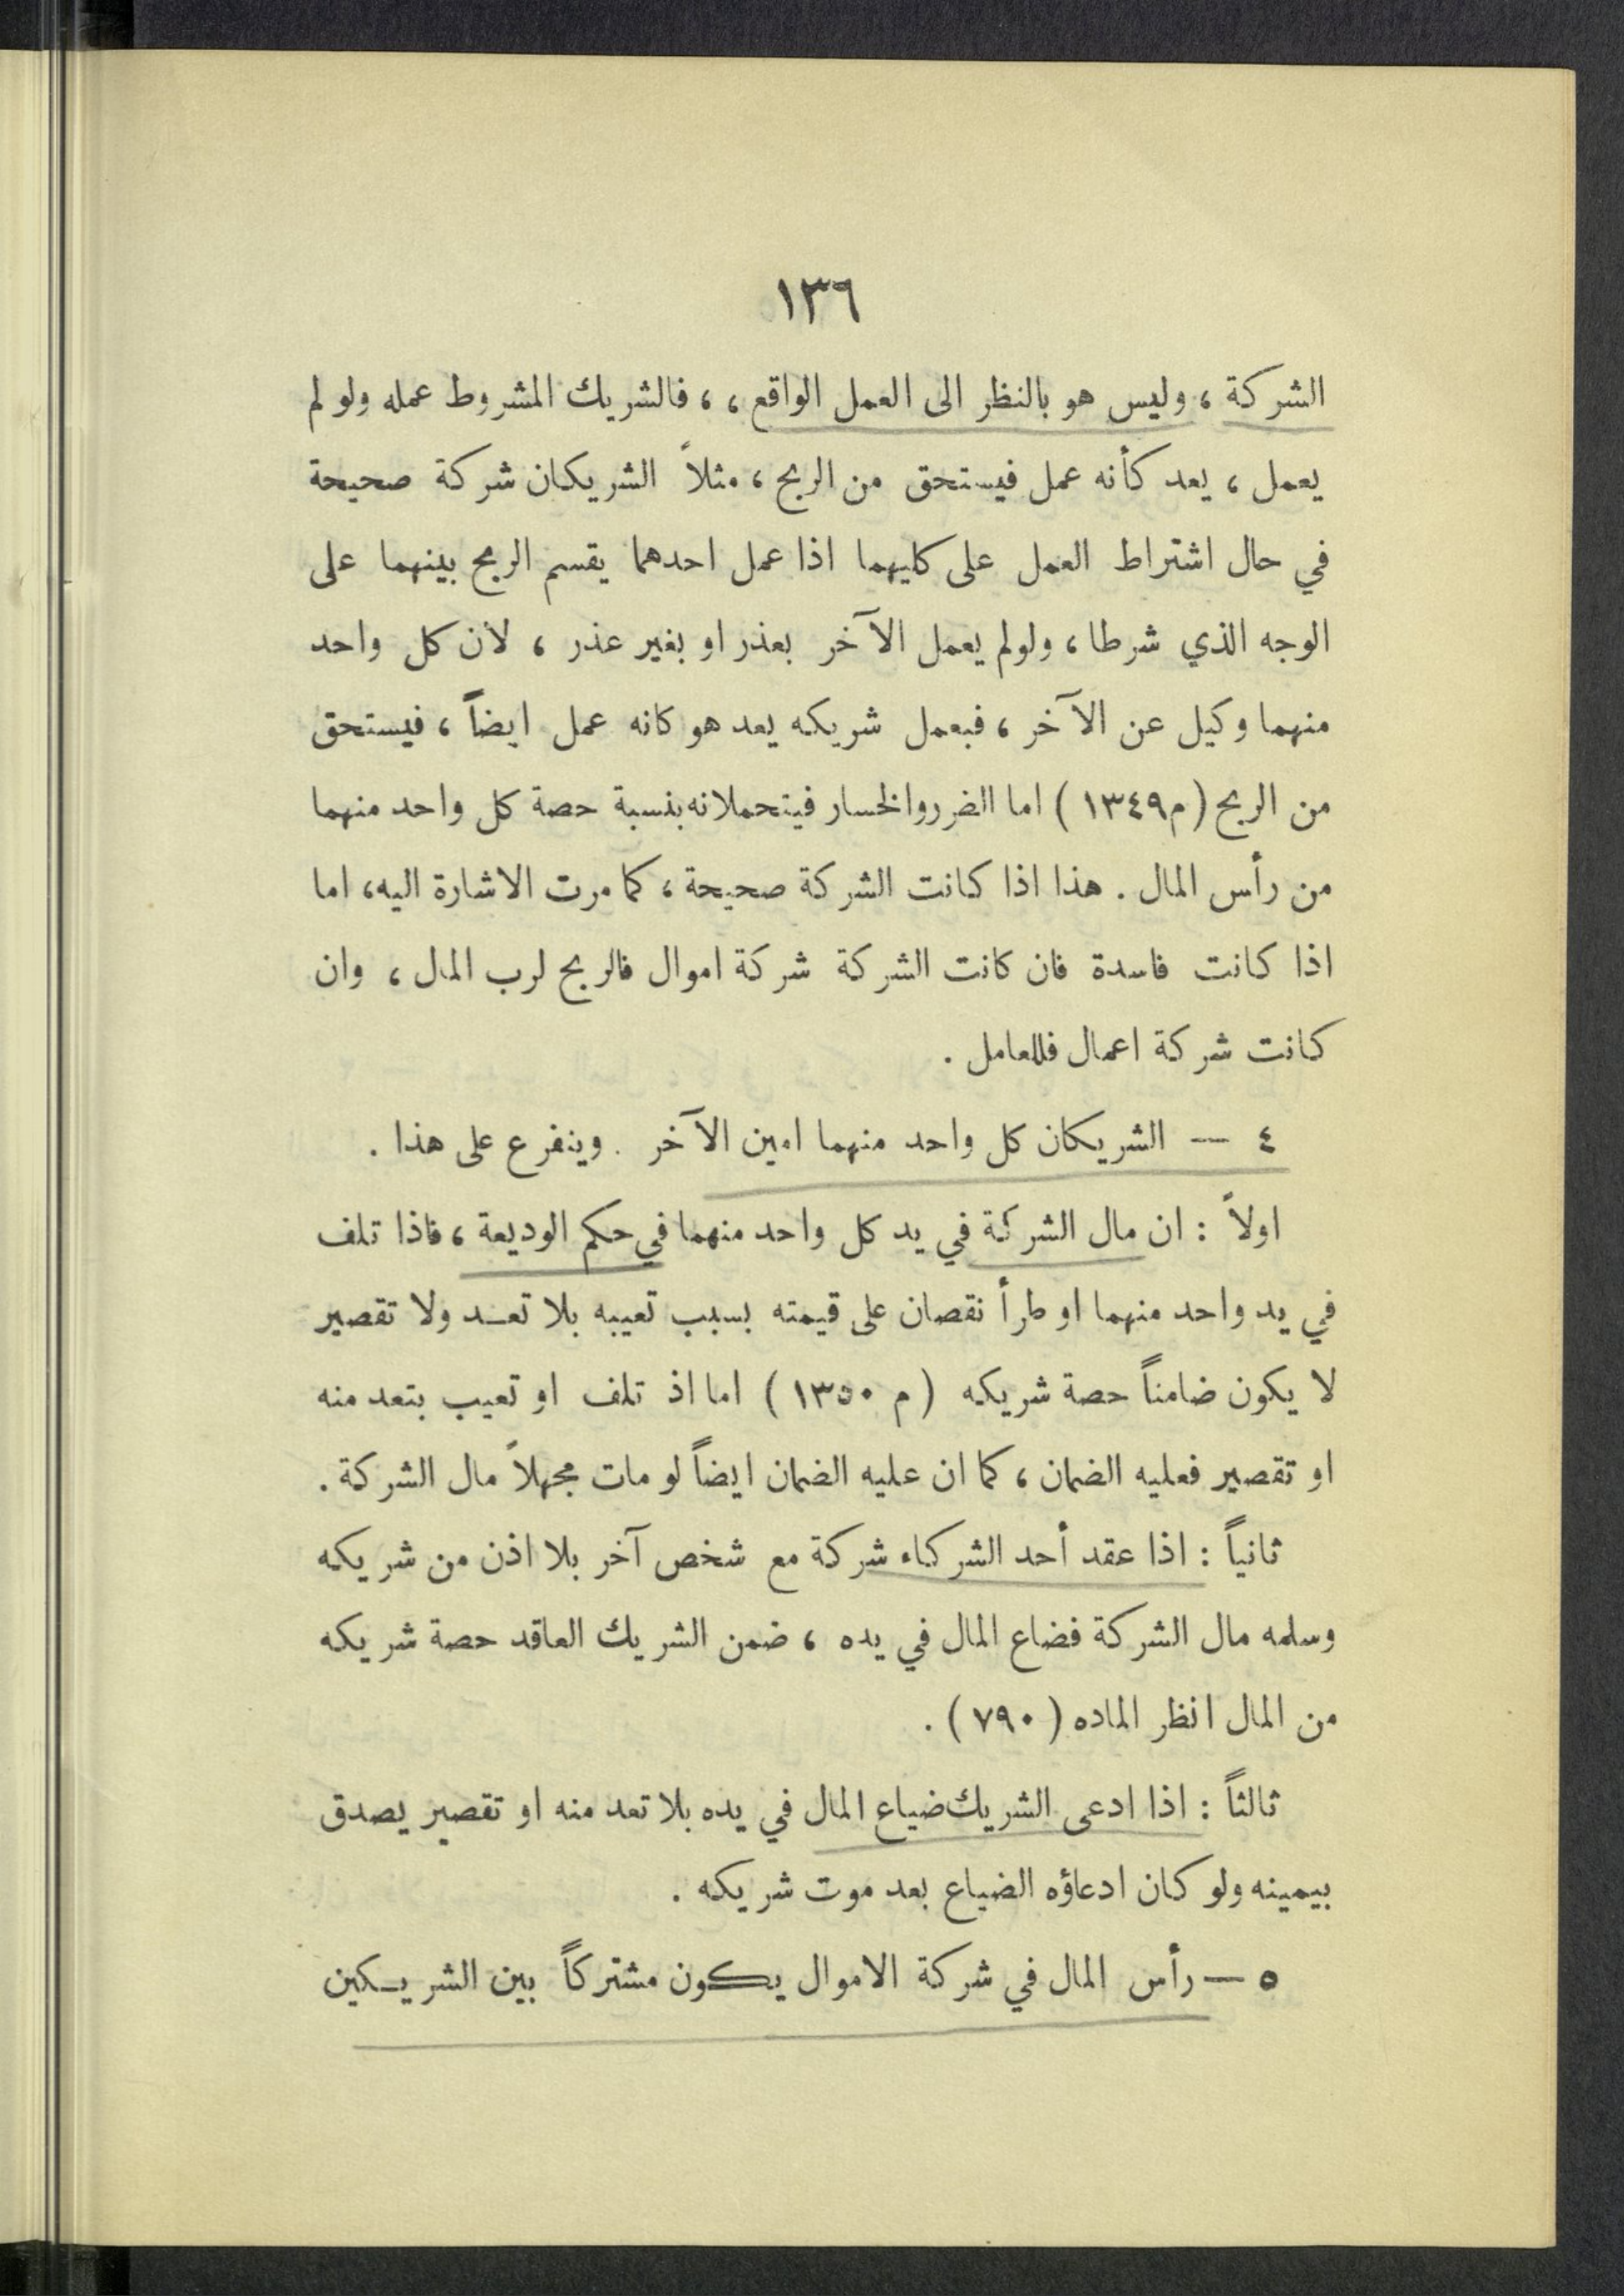 ١٣٦
الشركة ، وليس هو بالنظر الى العمل الواقع ، ، فالشريك المشروط عمله ولو لم
يعمل ، يعد كأنه عمل فيستحق من الربح ، مثلاً الشريكان شركة صحيحة
في حال اشتراط العمل على كليهما اذا عمل احدهما يقسم الربح بينهما على
الوجه الذي شرطا ، ولو لم يعمل الآخر بعذر او بغير عذر ، لان كل واحد
منهما وكيل عن الآخر ، فبعمل شريكه يعد هو كانه عمل ايضاً ، فيستحق
من الربح ( م ١٣٤٩ ) اما الضرر والخسار فيتحملانه بنسبة حصة كل واحد منهما
من رأس المال . هذا اذا كانت الشركة صحيحة ، كما مرت الاشارة اليه ، اما
اذا كانت فاسدة فان كانت الشركة شركة اموال فالربح لرب المال ، وان
كانت شركة اعمال فللعامل .
٤ — الشريكان كل واحد منهما امين الآخر . وينفرع على هذا .
اولاً : ان مال الشركة في يد كل واحد منهما في حكم الوديعة ، فاذا تلف
في يد واحد منهما او طرأ نقصان على قيمته بسبب تعيبه بلا تعد ولا تقصير
لا يكون ضامناً حصة شريكه ( م ١٣٥٠ ) اما اذ تلف او تعيب بتعد منه
او تقصير فعليه الضمان ، كما ان عليه الضمان ايضاً لو مات مجهلاً مال الشركة .
ثانياً : اذا عقد أحد الشركاء شركة مع شخص آخر بلا اذن من شريكه
وسلمه مال الشركة فضاع المال في يده ، ضمن الشريك العاقد حصة شريكه
من المال انظر الماده ( ٧٩٠ ) .
ثالثاً : اذا ادعى الشريك ضياع المال في يده بلا تعد منه او تقصير يصدق
بيمينه ولو كان ادعاؤه الضياع بعد موت شريكه .
٥ — رأس المال في شركة الاموال يكون مشتركاً بين الشريكين